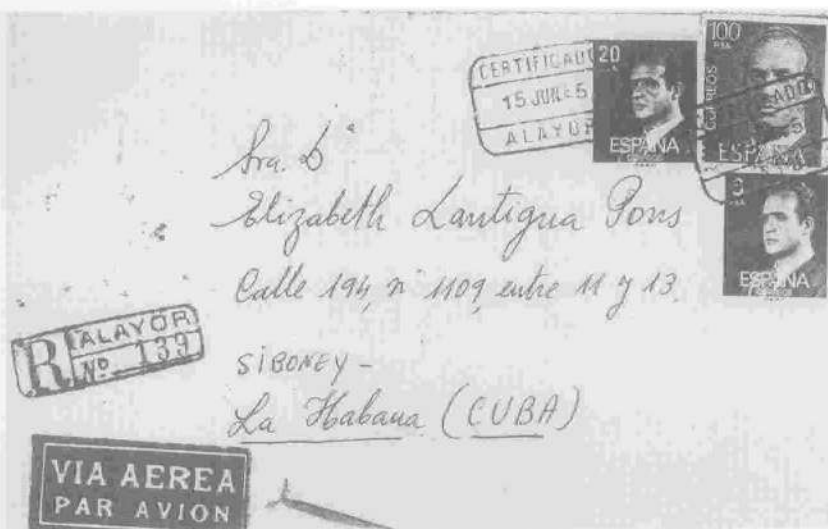 CERTIFICADO
15 JUN 85
ALAYOR
20
ESPAÑA
100
PTA
CORREOS
ESPAÑA
3
PTA
ESPAÑA
Sra. Dª
Elizabeth Lantigua Pons
Calle 194, nº 1109, entre 11 y 13.
SIBONEY -
La Habana (CUBA)
R ALAYOR
Nº 139
VIA AEREA
PAR AVION